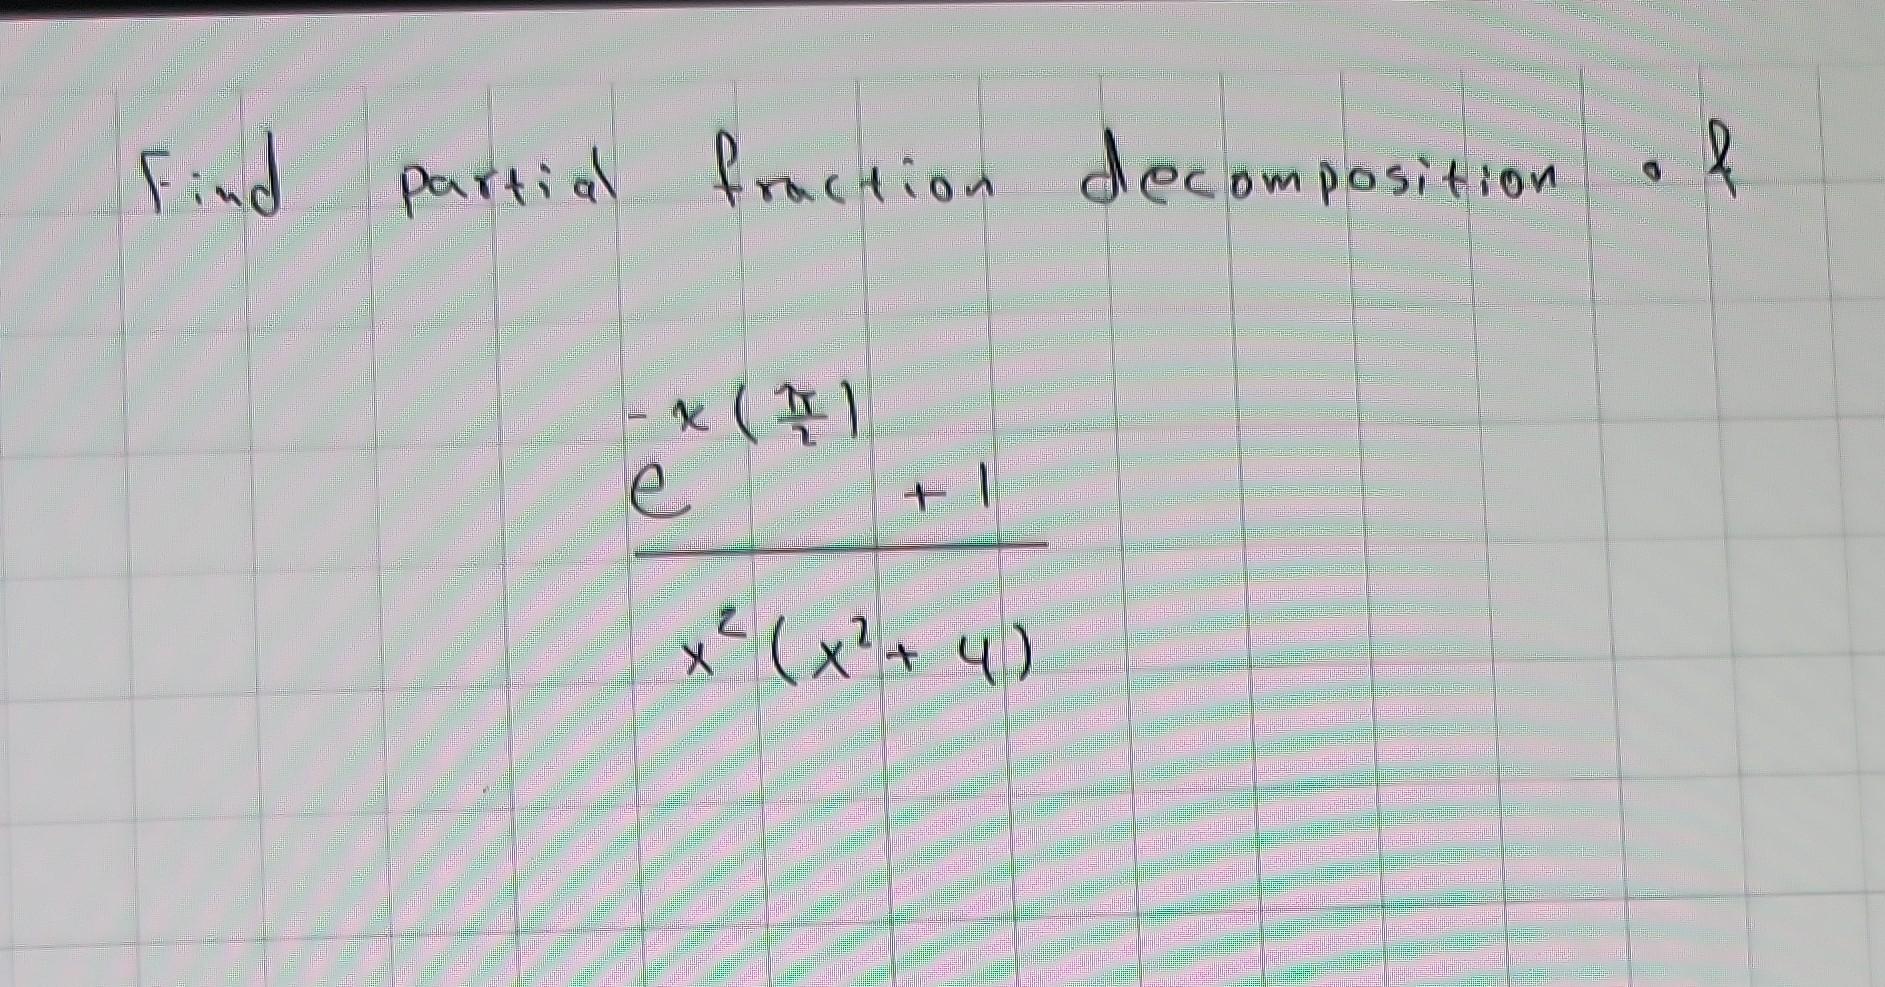 Find partial fraction decomposition of
e^{-x(\frac{\pi}{2})} + 1
x^2(x^2 + 4)